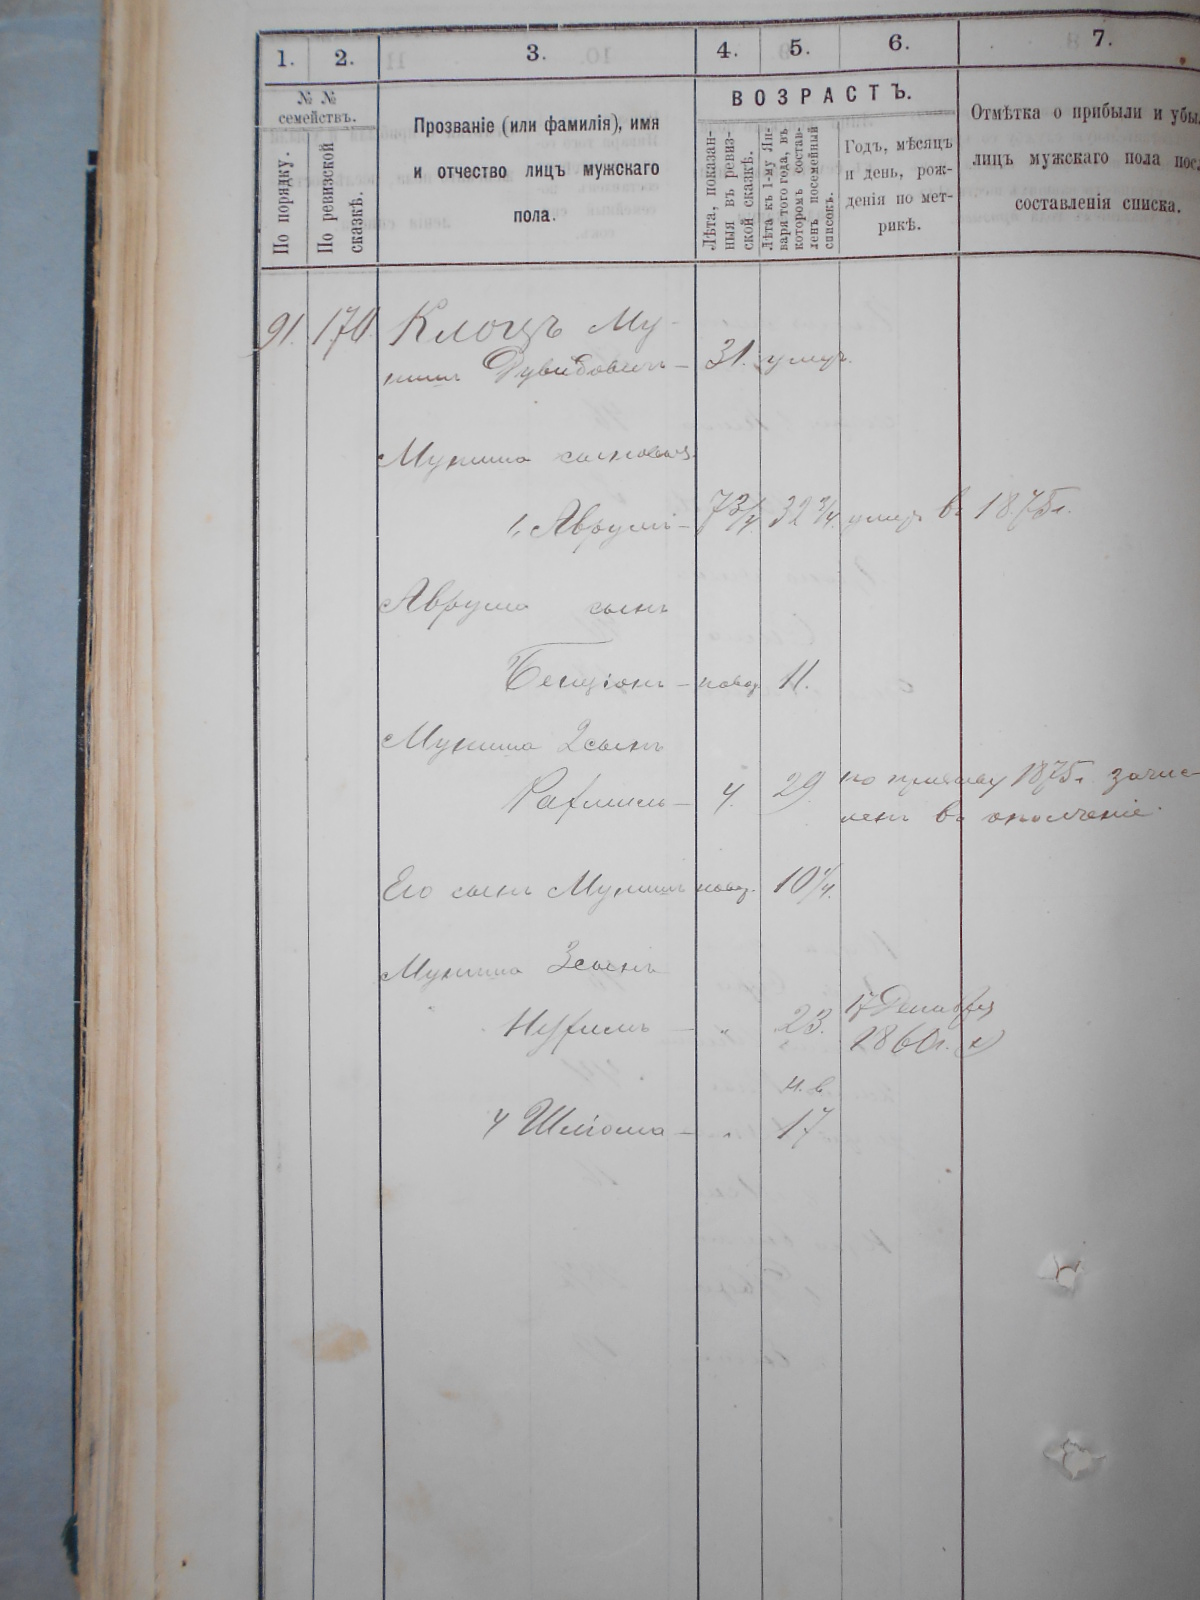 1. 2. 3. 4. 5. 6. 7.
№ №
семействъ.
По порядку.
По ревизской
сказкѣ.
Прозваніе (или фамилія), имя
и отчество лицъ мужскаго
пола.
ВОЗРАСТЪ.
Лѣта, показан-
ныя въ ревиз-
ской сказкѣ.
Лѣта къ 1-му Ян-
варя того года, въ
которомъ состав-
ленъ посемейный
списокъ.
Годъ, мѣсяцъ
и день, рож-
денія по мет-
рикѣ.
Отмѣтка о прибыли и убы
лицъ мужскаго пола пос
составленія списка.
91. 170. Клоцъ Му-
нишъ Дувидовичъ — 31. умеръ.
Муниша сыновья
1, Аврумъ — 7 3/4. 32 3/4. умеръ въ 1875 г.
Аврума сынъ
Бенціонъ — новор. 11.
Муниша 2 сынъ
Рахмиль — 4. 29. по призыву 1875 г. зачис-
ленъ въ ополченіе.
Его сынъ Мунишъ новор. 10 1/4.
Муниша 3 сынъ
Нухимъ — " 23. 17 Декабря
1860 г.
н. в.
4 Шліома — " 17